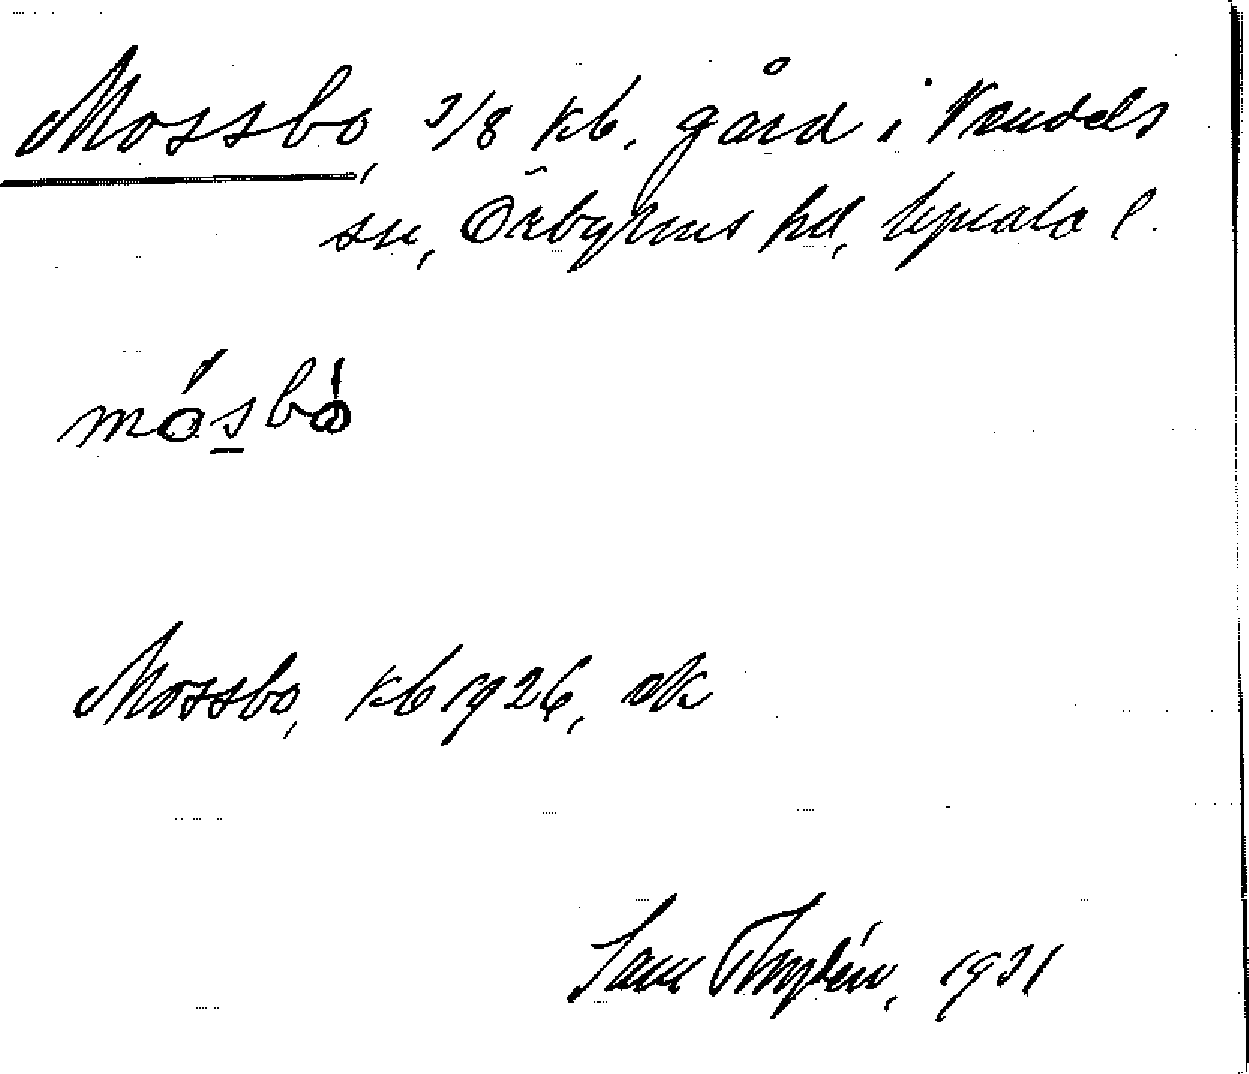 Mossbo, 3/8 kb. gård i Vendels
sn, Örbyhus hd, Upsala l.
mósbò
Mossbo, kb 1926, ek
1931